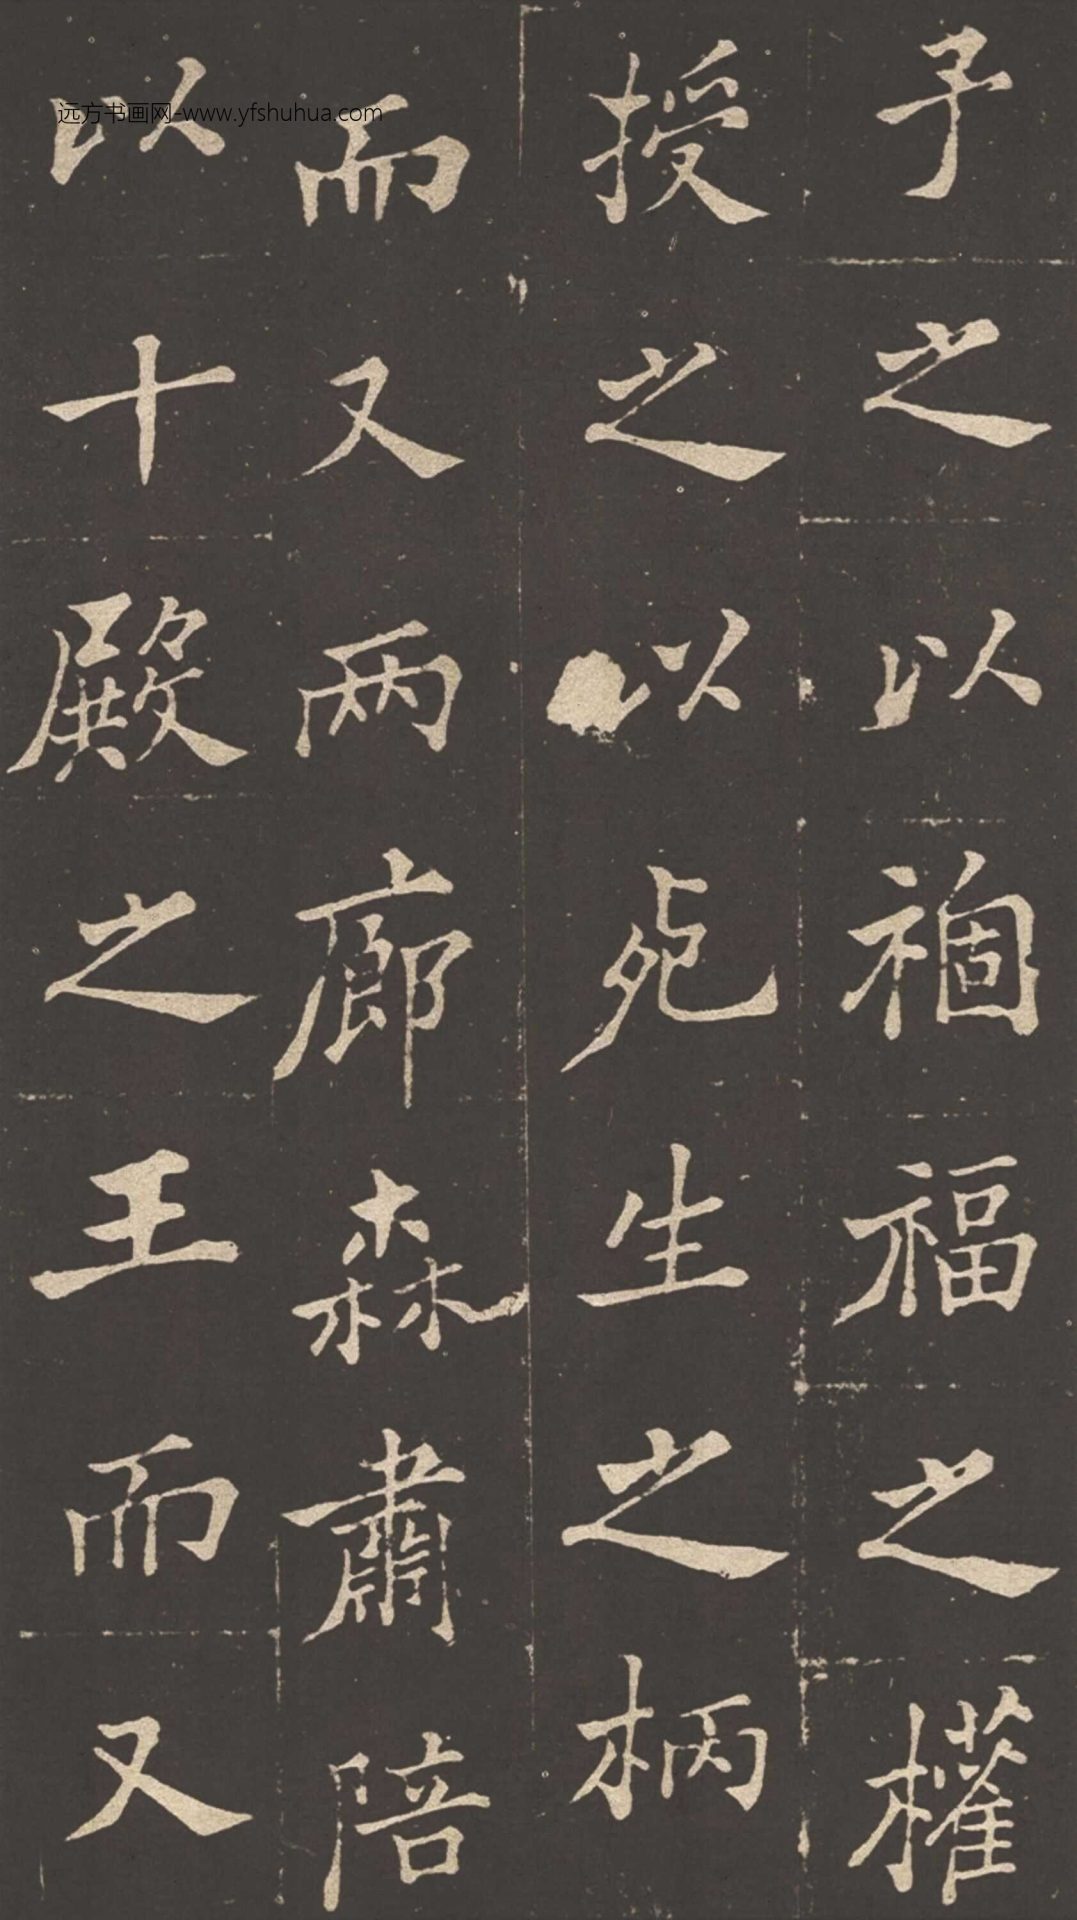 予之以禍福之權
授之以死生之柄
而又兩廊森肅陪
以十殿之王而又
远方书画网-www.yfshuhua.com